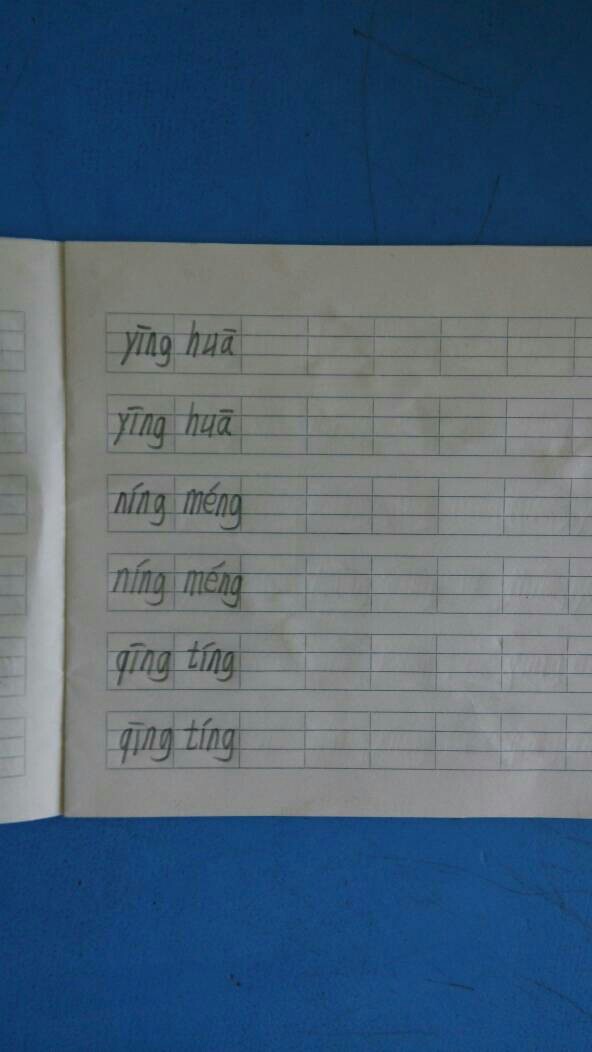 yīng huā
yīng huā
níng méng
níng méng
qīng tíng
qīng tíng